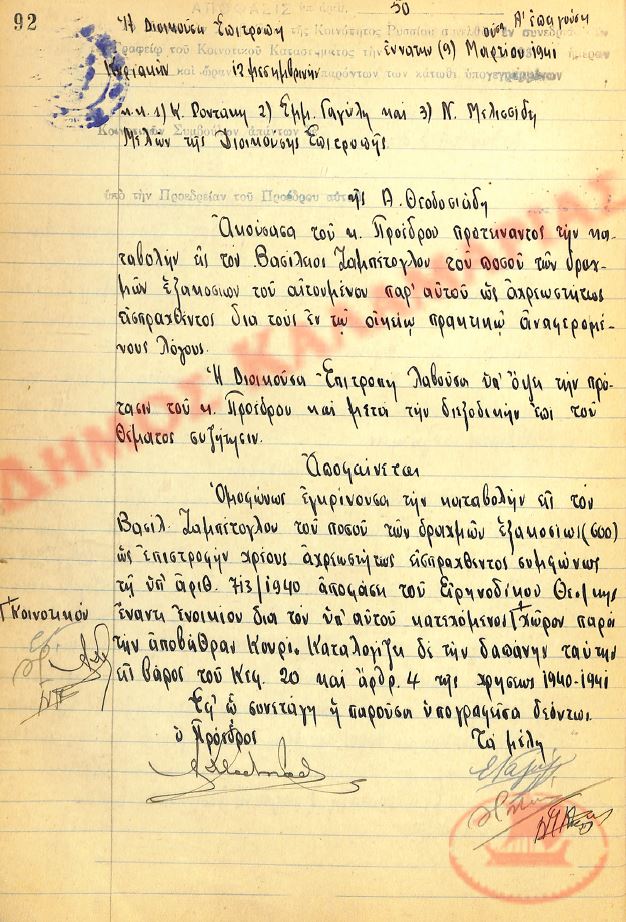 92
ΑΠΟΦΑΣΙΣ ὑπ' ἀριθ. 50
Ἡ Διοικοῦσα Ἐπιτροπὴ τῆς Κοινότητος Ρυσίου συνελθοῦσα Α' ἐπαγοῦσα ἐν συνεδρι
Γραφείῳ τοῦ Κοινοτικοῦ Καταστήματος τὴν ἐννάτην (9) Μαρτίου 1941 ἡμέραν
Κυριακὴν καὶ ὥραν 12 μεσημβρινὴν παρόντων τῶν κάτωθι ὑπογεγραμμένων
κ.κ. 1) Κ. Ροντάκη 2) Εμμ. Γαγύλη καὶ 3) Ν. Μελισσίδη
Κοινοτικῶν Συμβούλων ἁπάντων
Μελῶν τῆς Διοικούσης Ἐπιτροπῆς
ὑπὸ τὴν Προεδρείαν τοῦ Προέδρου αὐτῆς Α. Θεοδοσιάδη
Ἀκούσασα τοῦ κ. Προέδρου προτείναντος τὴν κα-
ταβολὴν εἰς τὸν Βασίλειον Ζαμπέτογλου τοῦ ποσοῦ τῶν δραχ-
μῶν ἑξακοσίων τοῦ αἰτουμένου παρ' αὐτοῦ ὡς ἀχρεωστήτως
εἰσπραχθέντος διὰ τοὺς ἐν τῷ οἰκείῳ πρακτικῷ ἀναφερομέ-
νους λόγους.
Ἡ Διοικοῦσα Ἐπιτροπὴ λαβοῦσα ὑπ' ὄψει τὴν πρό-
τασιν τοῦ κ. Προέδρου καὶ μετὰ τὴν διεξοδικὴν ἐπὶ τοῦ
θέματος συζήτησιν.
Ἀποφαίνεται
Ὁμοφώνως ἐγκρίνουσα τὴν καταβολὴν εἰς τὸν
Βασίλ. Ζαμπέτογλου τοῦ ποσοῦ τῶν δραχμῶν ἑξακοσίω (600)
ὡς ἐπιστροφὴν χρέους ἀχρεωστήτως εἰσπραχθέντος συμφώνως
τῇ ὑπ' ἀριθ. 713/1940 ἀποφάσει τοῦ Εἰρηνοδίκου Θεσ/κης
Γ+ Κοινοτικόν
ἔναντι ἐνοικίου διὰ τὸν ὑπ' αὐτοῦ κατεχόμενον Γ+ χῶρον παρὰ
τὴν ἀποβάθραν Κουρί. Καταλογίζει δὲ τὴν δαπάνην ταύτην
εἰς βάρος τοῦ Κεφ. 20 καὶ ἄρθρ. 4 τῆς χρήσεως 1940-1941
Ἐφ' ᾧ συνετάγη ἡ παροῦσα ὑπογραφεῖσα δεόντως.
ὁ Πρόεδρος Τὰ μέλη
ΔΗΜΟΣ ΚΑΛΑΜΑΡΙΑΣ